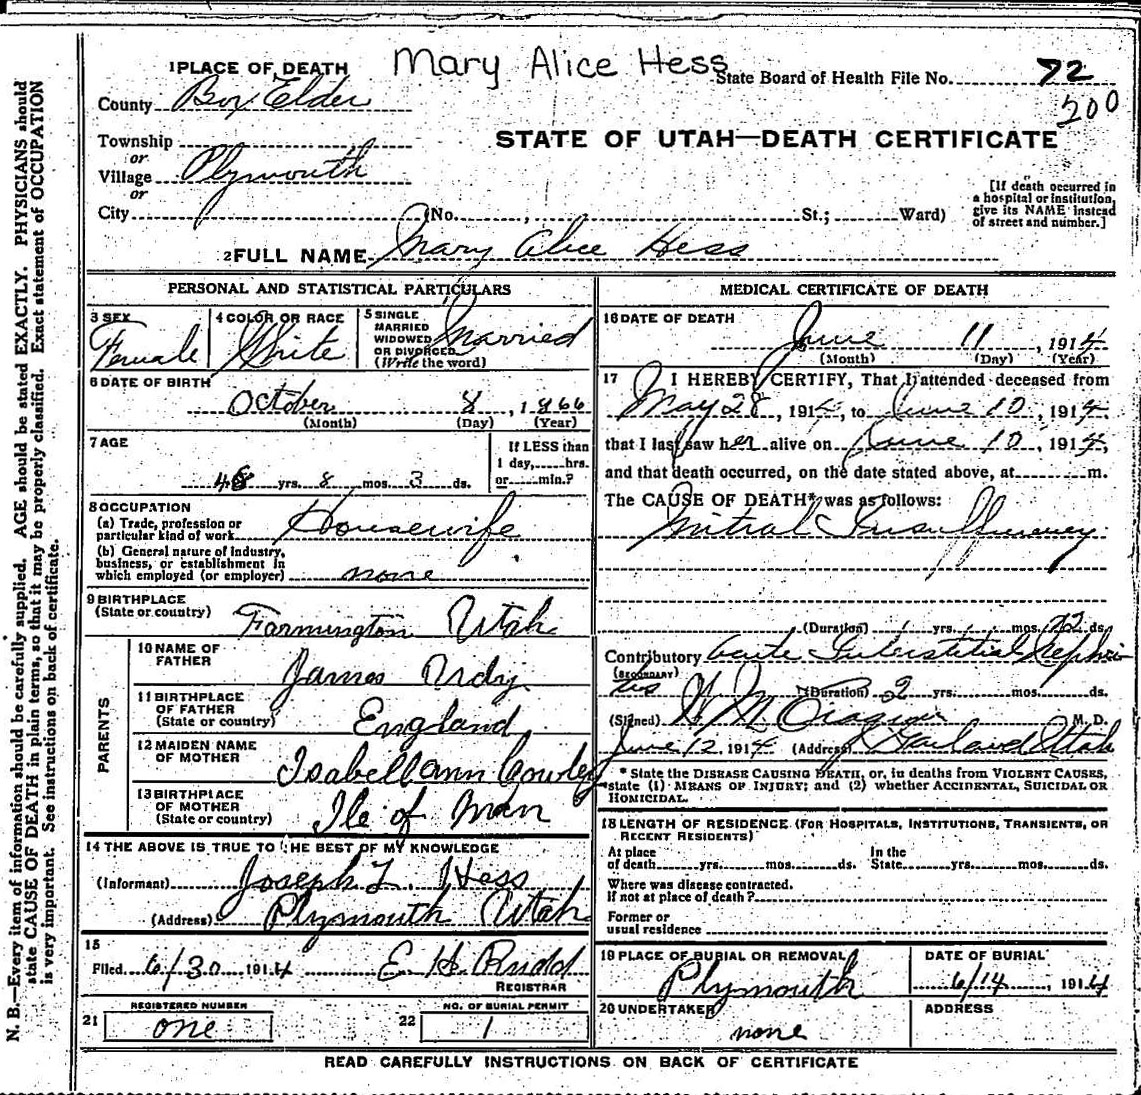 Mary Alice Hess
1 PLACE OF DEATH
State Board of Health File No. 72
200
County Box Elder
STATE OF UTAH—DEATH CERTIFICATE
Township
or
Village Plymouth
or
City (No. , St.; Ward)
[If death occurred in
a hospital or institution,
give its NAME instead
of street and number.]
2 FULL NAME Mary Alice Hess
PERSONAL AND STATISTICAL PARTICULARS
3 SEX
Female
4 COLOR OR RACE
White
5 SINGLE
MARRIED
WIDOWED
OR DIVORCED
(Write the word)
Married
6 DATE OF BIRTH
October 8, 1866
(Month) (Day) (Year)
7 AGE
48 yrs. 8 mos. 3 ds.
If LESS than
1 day, hrs.
or min.?
8 OCCUPATION
(a) Trade, profession or
particular kind of work Housewife
(b) General nature of industry,
business, or establishment in
which employed (or employer) none
9 BIRTHPLACE
(State or country)
Farmington Utah
PARENTS
10 NAME OF
FATHER
James Urdy
11 BIRTHPLACE
OF FATHER
(State or country)
England
12 MAIDEN NAME
OF MOTHER
Isabell ann Cowley
13 BIRTHPLACE
OF MOTHER
(State or country)
Ile of Man
14 THE ABOVE IS TRUE TO THE BEST OF MY KNOWLEDGE
(Informant) Joseph L. Hess
(Address) Plymouth Utah
15
Filed 6/30 1914 E H Rudd
REGISTRAR
21
REGISTERED NUMBER
one
22
NO. OF BURIAL PERMIT
1
MEDICAL CERTIFICATE OF DEATH
16 DATE OF DEATH
June 11, 1914
(Month) (Day) (Year)
17 I HEREBY CERTIFY, That I attended deceased from
May 28, 1914, to June 10, 1914
that I last saw her alive on June 10, 1914,
and that death occurred, on the date stated above, at m.
The CAUSE OF DEATH* was as follows:
Mitral Insufficiency
(Duration) yrs. mos. 12 ds.
Contributory acute Interstitial Nephri
(SECONDARY)
tis (Duration) 2 yrs. mos. ds.
(Signed) W M M. D.
June 12, 1914 (Address) Garland Utah
* State the DISEASE CAUSING DEATH, or, in deaths from VIOLENT CAUSES,
state (1) MEANS OF INJURY; and (2) whether ACCIDENTAL, SUICIDAL OR
HOMICIDAL.
18 LENGTH OF RESIDENCE (FOR HOSPITALS, INSTITUTIONS, TRANSIENTS, OR
RECENT RESIDENTS)
At place
of death yrs. mos. ds.
In the
State yrs. mos. ds.
Where was disease contracted.
If not at place of death?
Former or
usual residence
19 PLACE OF BURIAL OR REMOVAL
Plymouth
DATE OF BURIAL
6/14, 1914
20 UNDERTAKER
none
ADDRESS
READ CAREFULLY INSTRUCTIONS ON BACK OF CERTIFICATE
N. B.—Every item of information should be carefully supplied. AGE should be stated EXACTLY. PHYSICIANS should
state CAUSE OF DEATH in plain terms, so that it may be properly classified. Exact statement of OCCUPATION
is very important. See instructions on back of certificate.